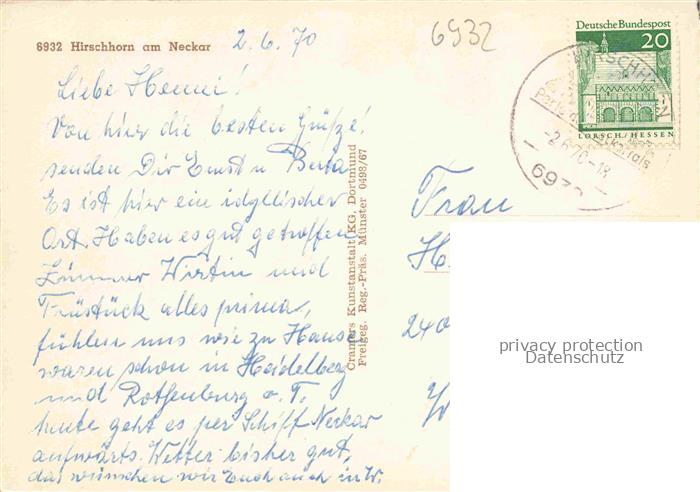 6932 Hirschhorn am Neckar
2.6.70
6932
Deutsche Bundespost
20
LORSCH/HESSEN
HIRSCHHORN
Perle des Neckartals
-2.6.70-18
6932
Liebe Henni!
Von hier die besten Grüße!
senden Dir Ernst u Berta
Es ist hier eine idyllischer
Ort. Haben es gut getroffen
Zimmer Wirtin und
Früstück alles prima,
fühlen uns wie zu Hause
waren schon in Heidelberg
und Rothenburg o. T.
heute geht es per Schiff Neckar
aufwärts. Wetter bisher gut,
das wünschen wir Euch auch in W.
Cramers Kunstanstalt KG. Dortmund
Freigeg. Reg.-Präs. Münster 0498/67
Frau
H
240
privacy protection
Datenschutz